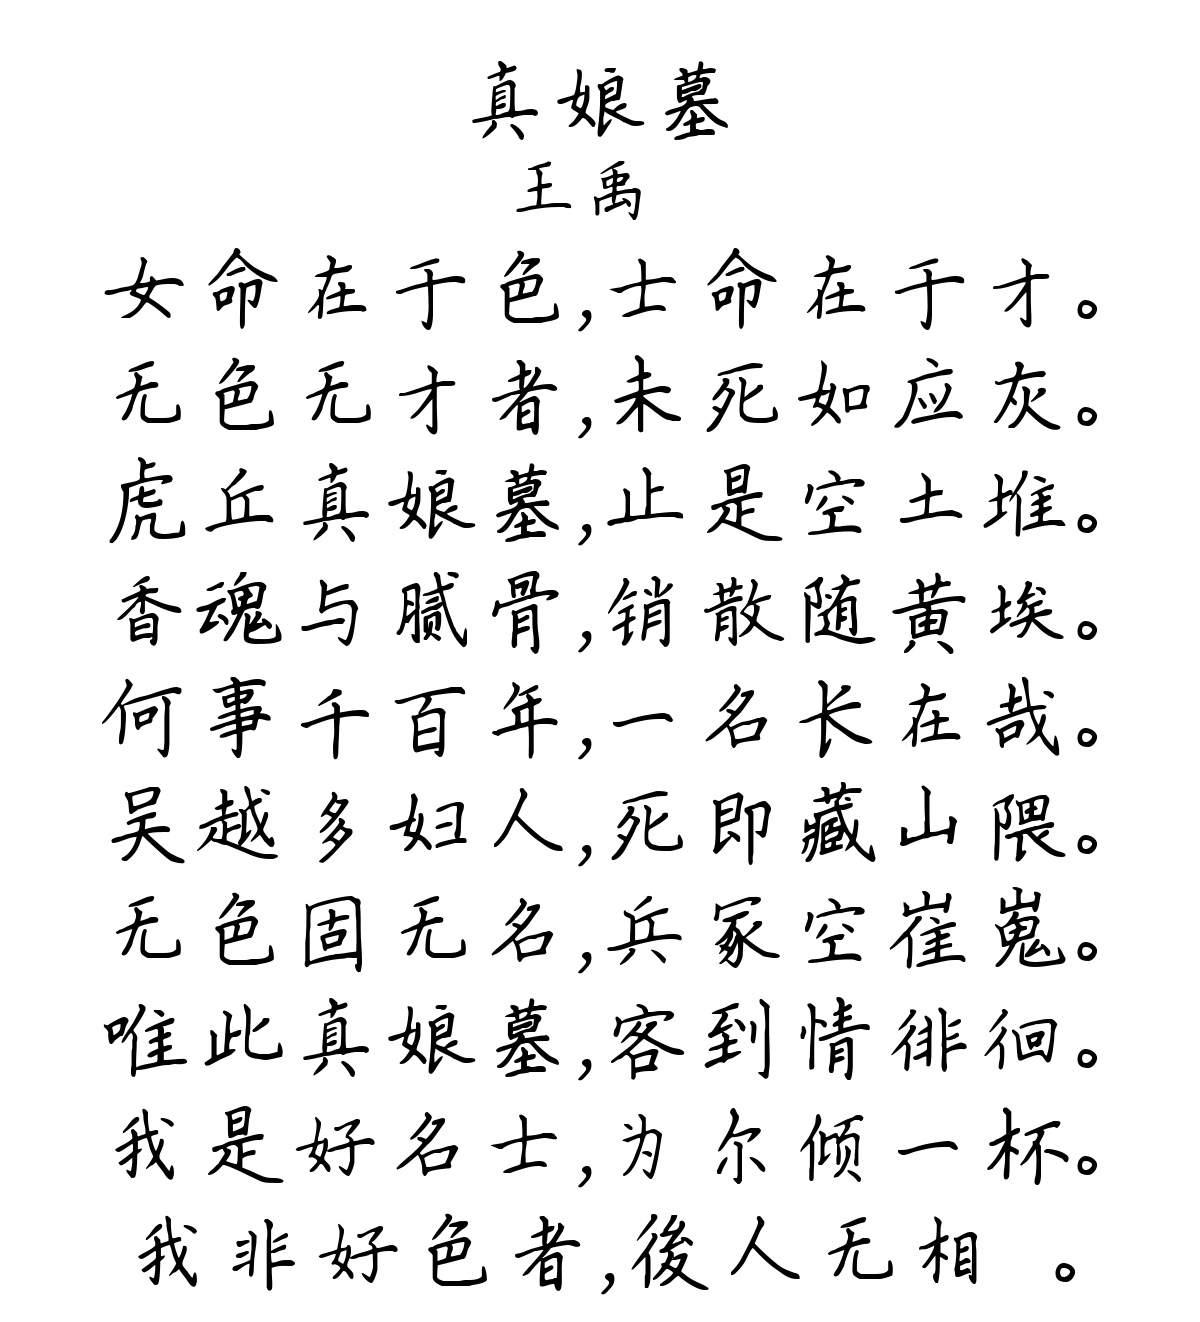 真娘墓
王禹
女命在于色,士命在于才。
无色无才者,未死如应灰。
虎丘真娘墓,止是空土堆。
香魂与腻骨,销散随黄埃。
何事千百年,一名长在哉。
吴越多妇人,死即藏山隈。
无色固无名,兵冢空崔嵬。
唯此真娘墓,客到情徘徊。
我是好名士,为尔倾一杯。
我非好色者,後人无相 。